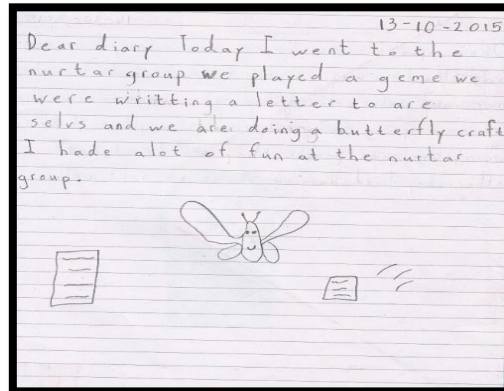 13-10-2015
Dear diary Today I went to the
nurtar group we played a geme we
were writting a letter to are
selvs and we are doing a butterfly craft
I hade alot of fun at the nurtar
group.